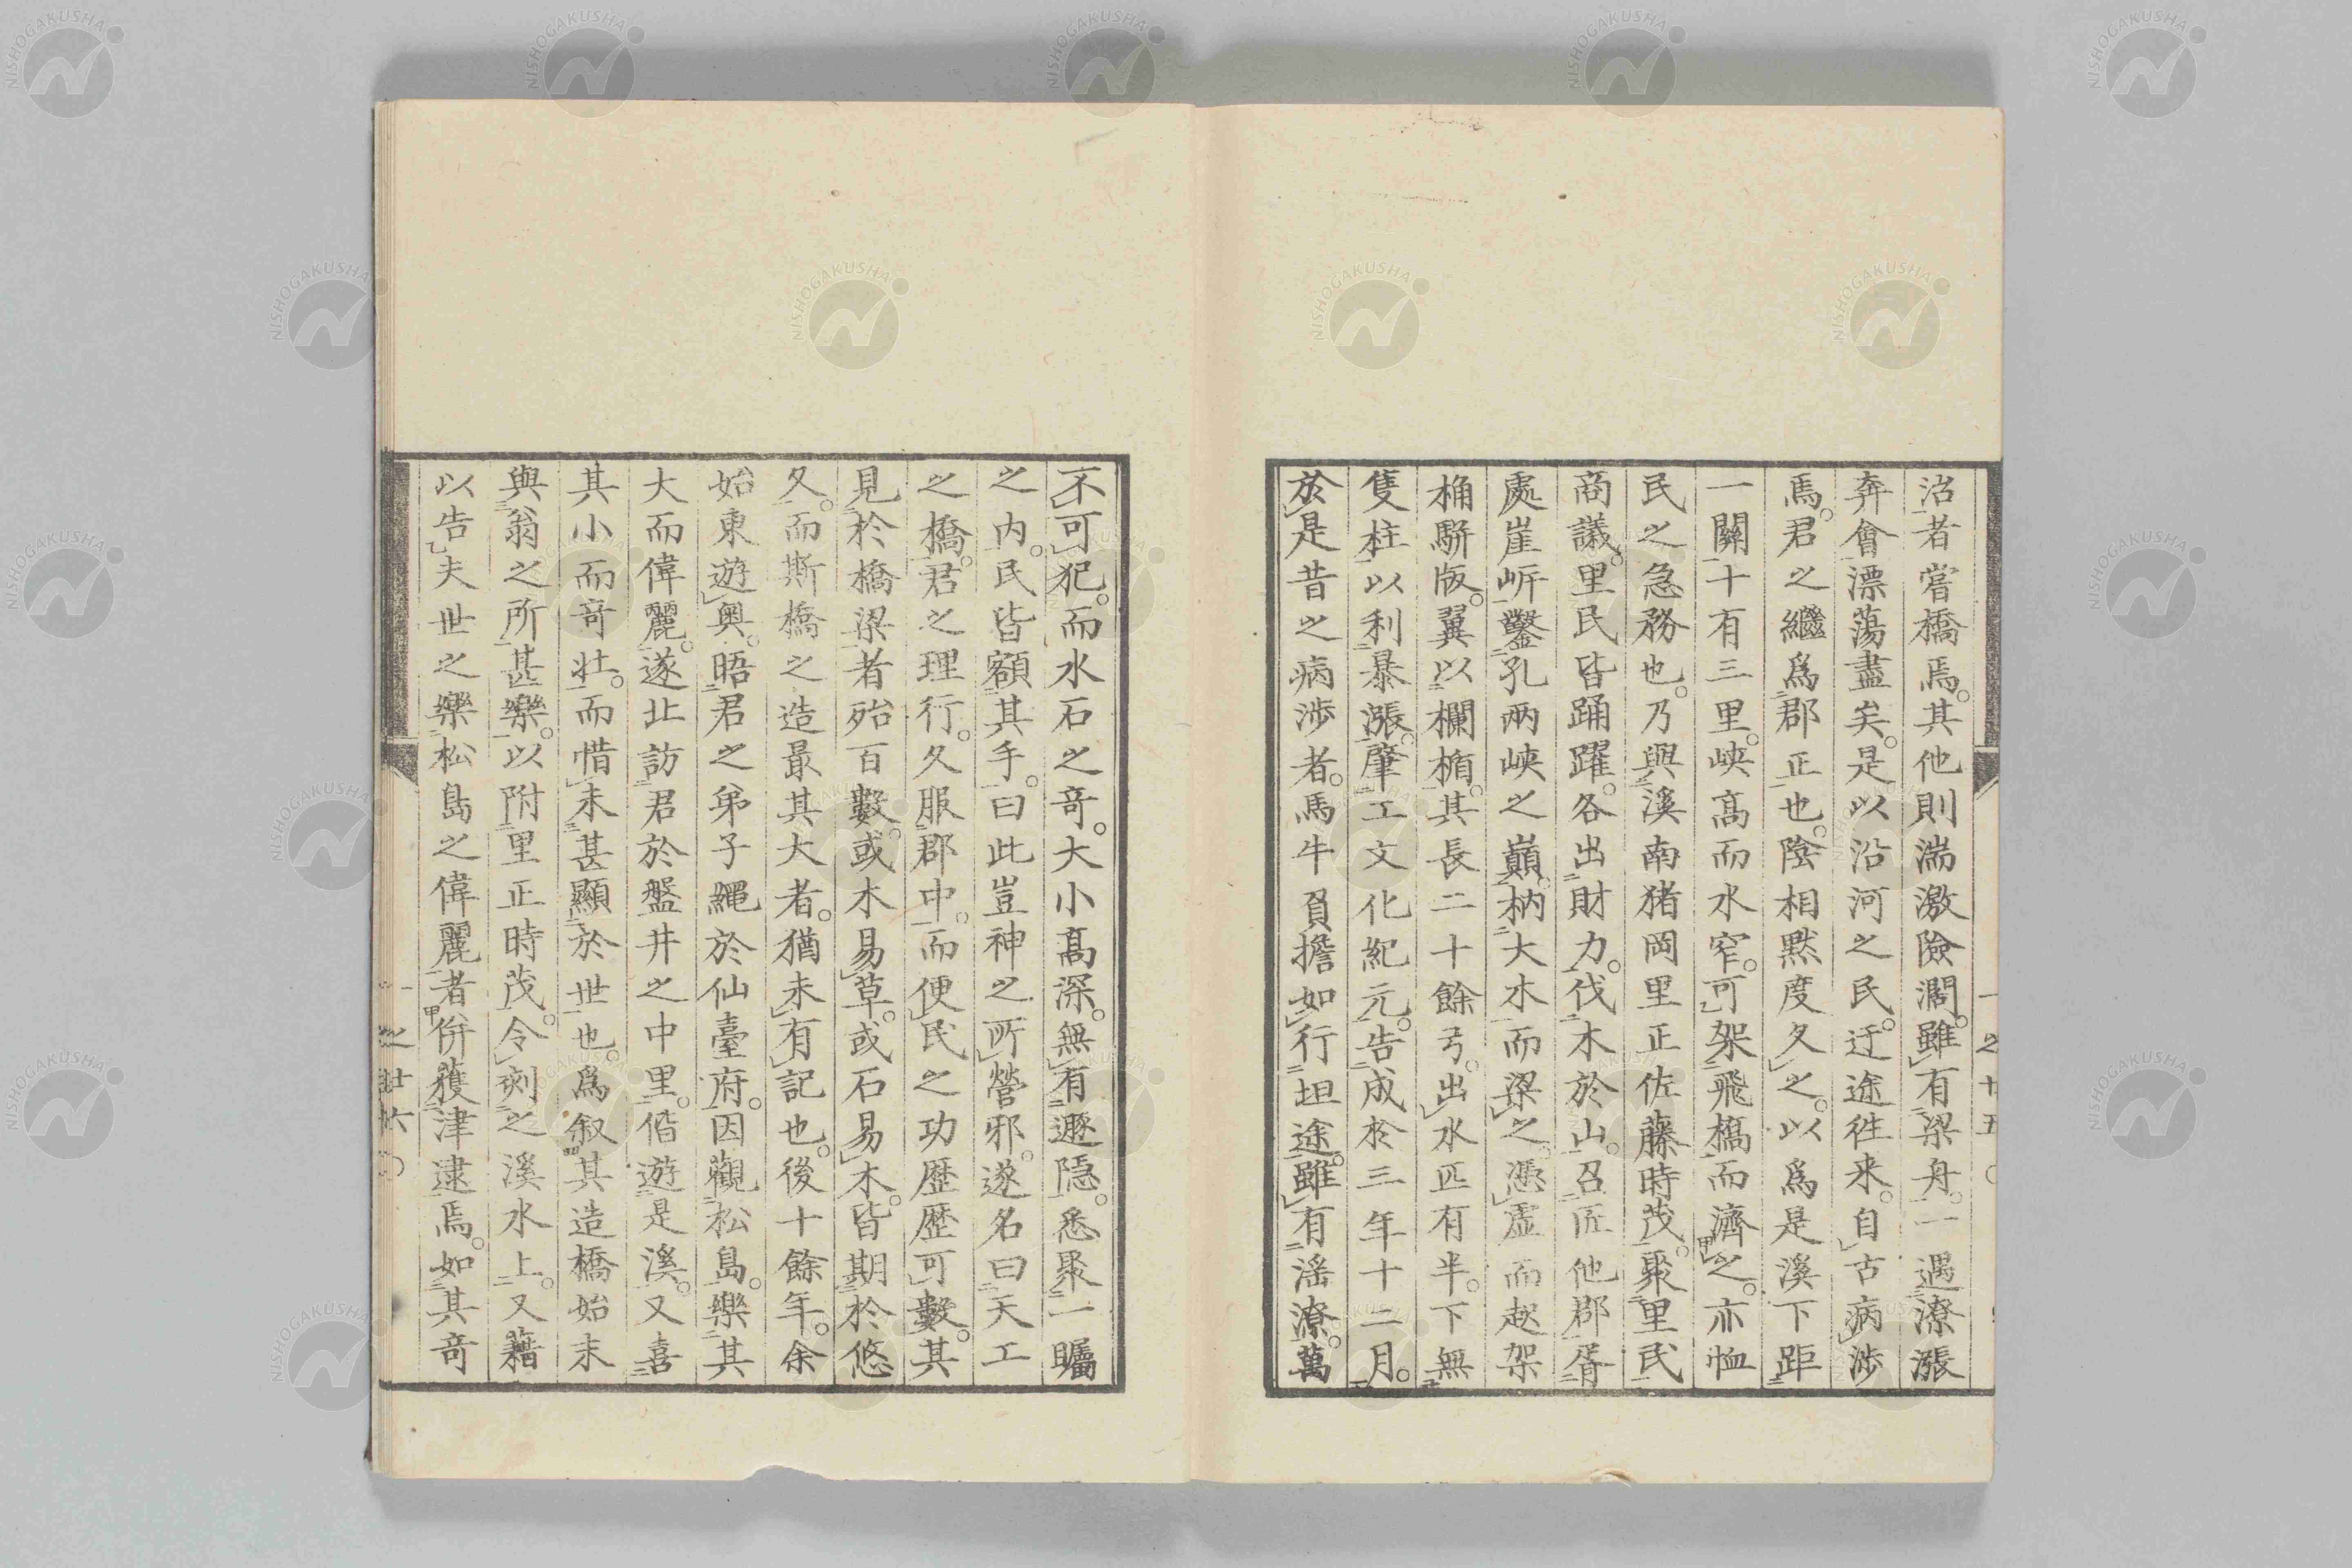 沿者嘗橋焉。其他則湍激險濶。雖有梁舟。一遇潦漲
奔會漂蕩盡矣。是以沿河之民。迂途徃来。自古病渉
焉。君之繼爲郡正也。陰相黙度久之。以爲是溪下距
一關十有三里。峡髙而水窄。可架飛橋而濟之。亦恤
民之急務也。乃與溪南猪岡里正佐藤時茂。聚里民
商議。里民皆踊躍。各出財力。伐木於山。召匠他郡。胥
處崖岍鑿孔兩峡之巓。枘大木而梁之。憑虚而越架
桷駢版。翼以欄楯。其長二十餘弓。出水匹有半。下無
隻柱以利暴漲。肇工文化紀元。告成於三年十二月。
於是昔之病渉者。馬牛負擔如行坦途。雖有淫潦。萬
不可犯。而水石之竒。大小髙深。無有遯隠。悉聚一矚
之内。民皆額其手。曰此豈神之所營邪。遂名曰天工
之橋。君之理行。久服郡中。而便民之功歴歴可數。其
見於橋梁者殆百數。或木易草。或石易木。皆期於悠
久。而斯橋之造最其大者。猶未有記也。後十餘年。余
始東遊奥。晤君之弟子繩於仙臺府。因觀松島。樂其
大而偉麗。遂北訪君於盤井之中里。偕遊是溪。又喜
其小而竒壮。而惜未甚顯於世也。爲叙其造橋始末
與翁之所甚樂。以附里正時茂。令刻之溪水上。又藉
以告夫世之樂松島之偉麗者。併獲津逮焉。如其竒
一之廿五
一之廿六
NISHOGAKUSHA